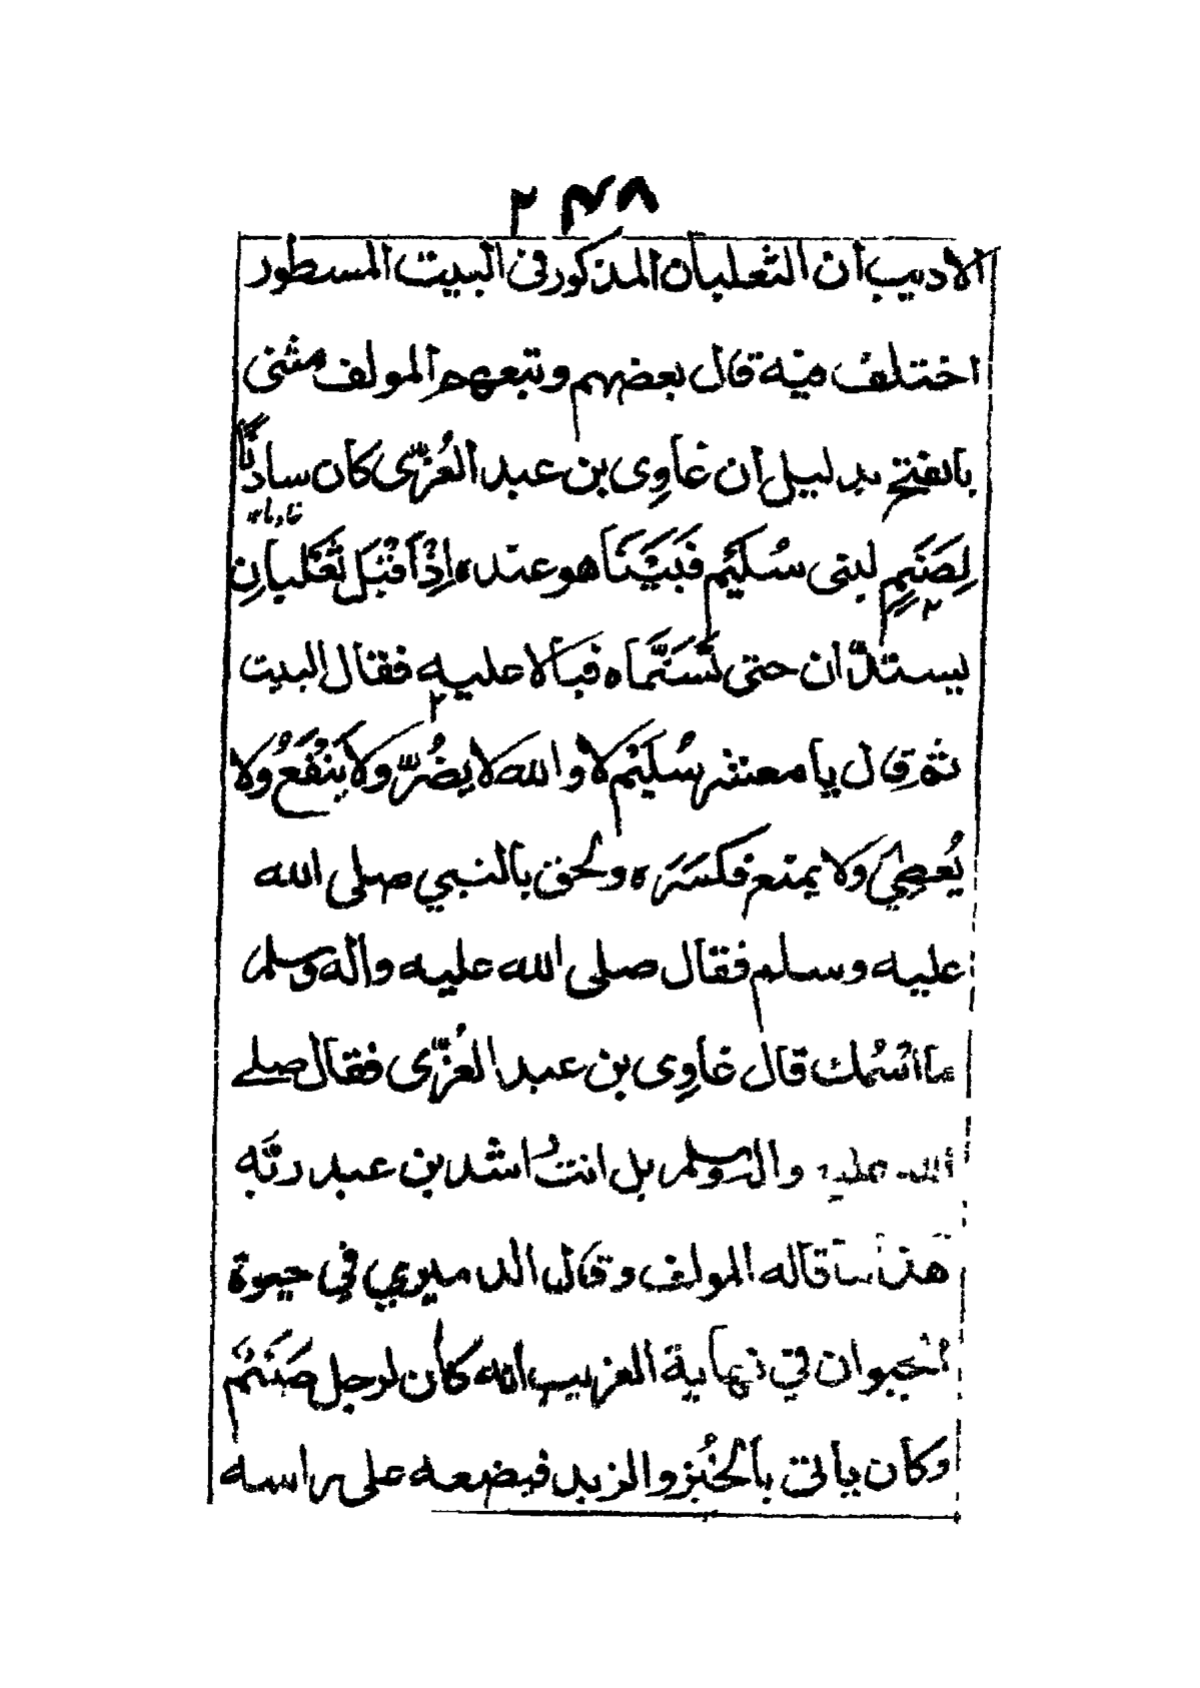 ٢٤٨
الاديب ان الثعلبان المذكور فى البيت المسطور
اختلف فيه قال بعضهم وتبعهم المولف مثنى
بالفتح بدليل ان غاوِى بن عبد العُزّى كان سادنًا
خادما
لِصَنَمٍ لبنى سُلَيْم فَبَيْنَا هو عنده اِذْ اَقْبَل ثَعْلبانِ
يستدّان حتى تَسَنَّماه فبالا عليه فقال البيت
ثم قال يا معشر سُلَيْم لا والله لا يضُرّ ولا يَنْفَعُ ولا
يُعطِي ولا يمنع فكسَرَه ولحق بالنبي صلى الله
عليه وسلم فقال صلى الله عليه واله وسلم
ما اسْمُك قال غاوِى بن عبد العُزّى فقال صلے
الله عليه واله وسلم بل انت راشد بن عبد ربّه
هذا ما قاله المولف وقال الدميري في حيوة
الحيوان في نهاية الغريب انه كان لرجل صَنَم
وكان ياتى بالخُبْز والزبد فيضعه على راسه